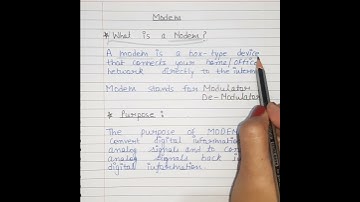 Modem
* What is a Modem?
A modem is a box-type device
that connects your home/office
network directly to the intern
Modem stands for Modulator
De-Modulator
* Purpose:
The purpose of MODEM
convert digital information
analog signals and to con
analog signals back in
digital information.